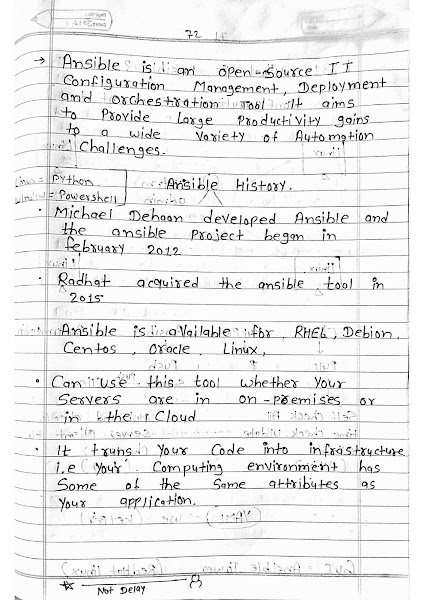 72
→ Ansible is an open-source IT
Configuration Management, Deployment
and orchestration tool. It aims
to Provide Large Productivity gains
to a wide Variety of Automation
Challenges.
Linux = Python
Window = Powershell
Ansible History.
• Michael Dehaan developed Ansible and
the ansible Project began in
february 2012
• Radhat acquired the ansible tool in
2015
Ansible is available for RHEL, Debion,
Centos, Oracle Linux,
• Can use this tool whether Your
Servers are in on-premises or
in the Cloud
• It truns Your Code into infrastructure
i.e Your Computing environment has
Some of the Same attributes as
Your application.
Not Delay